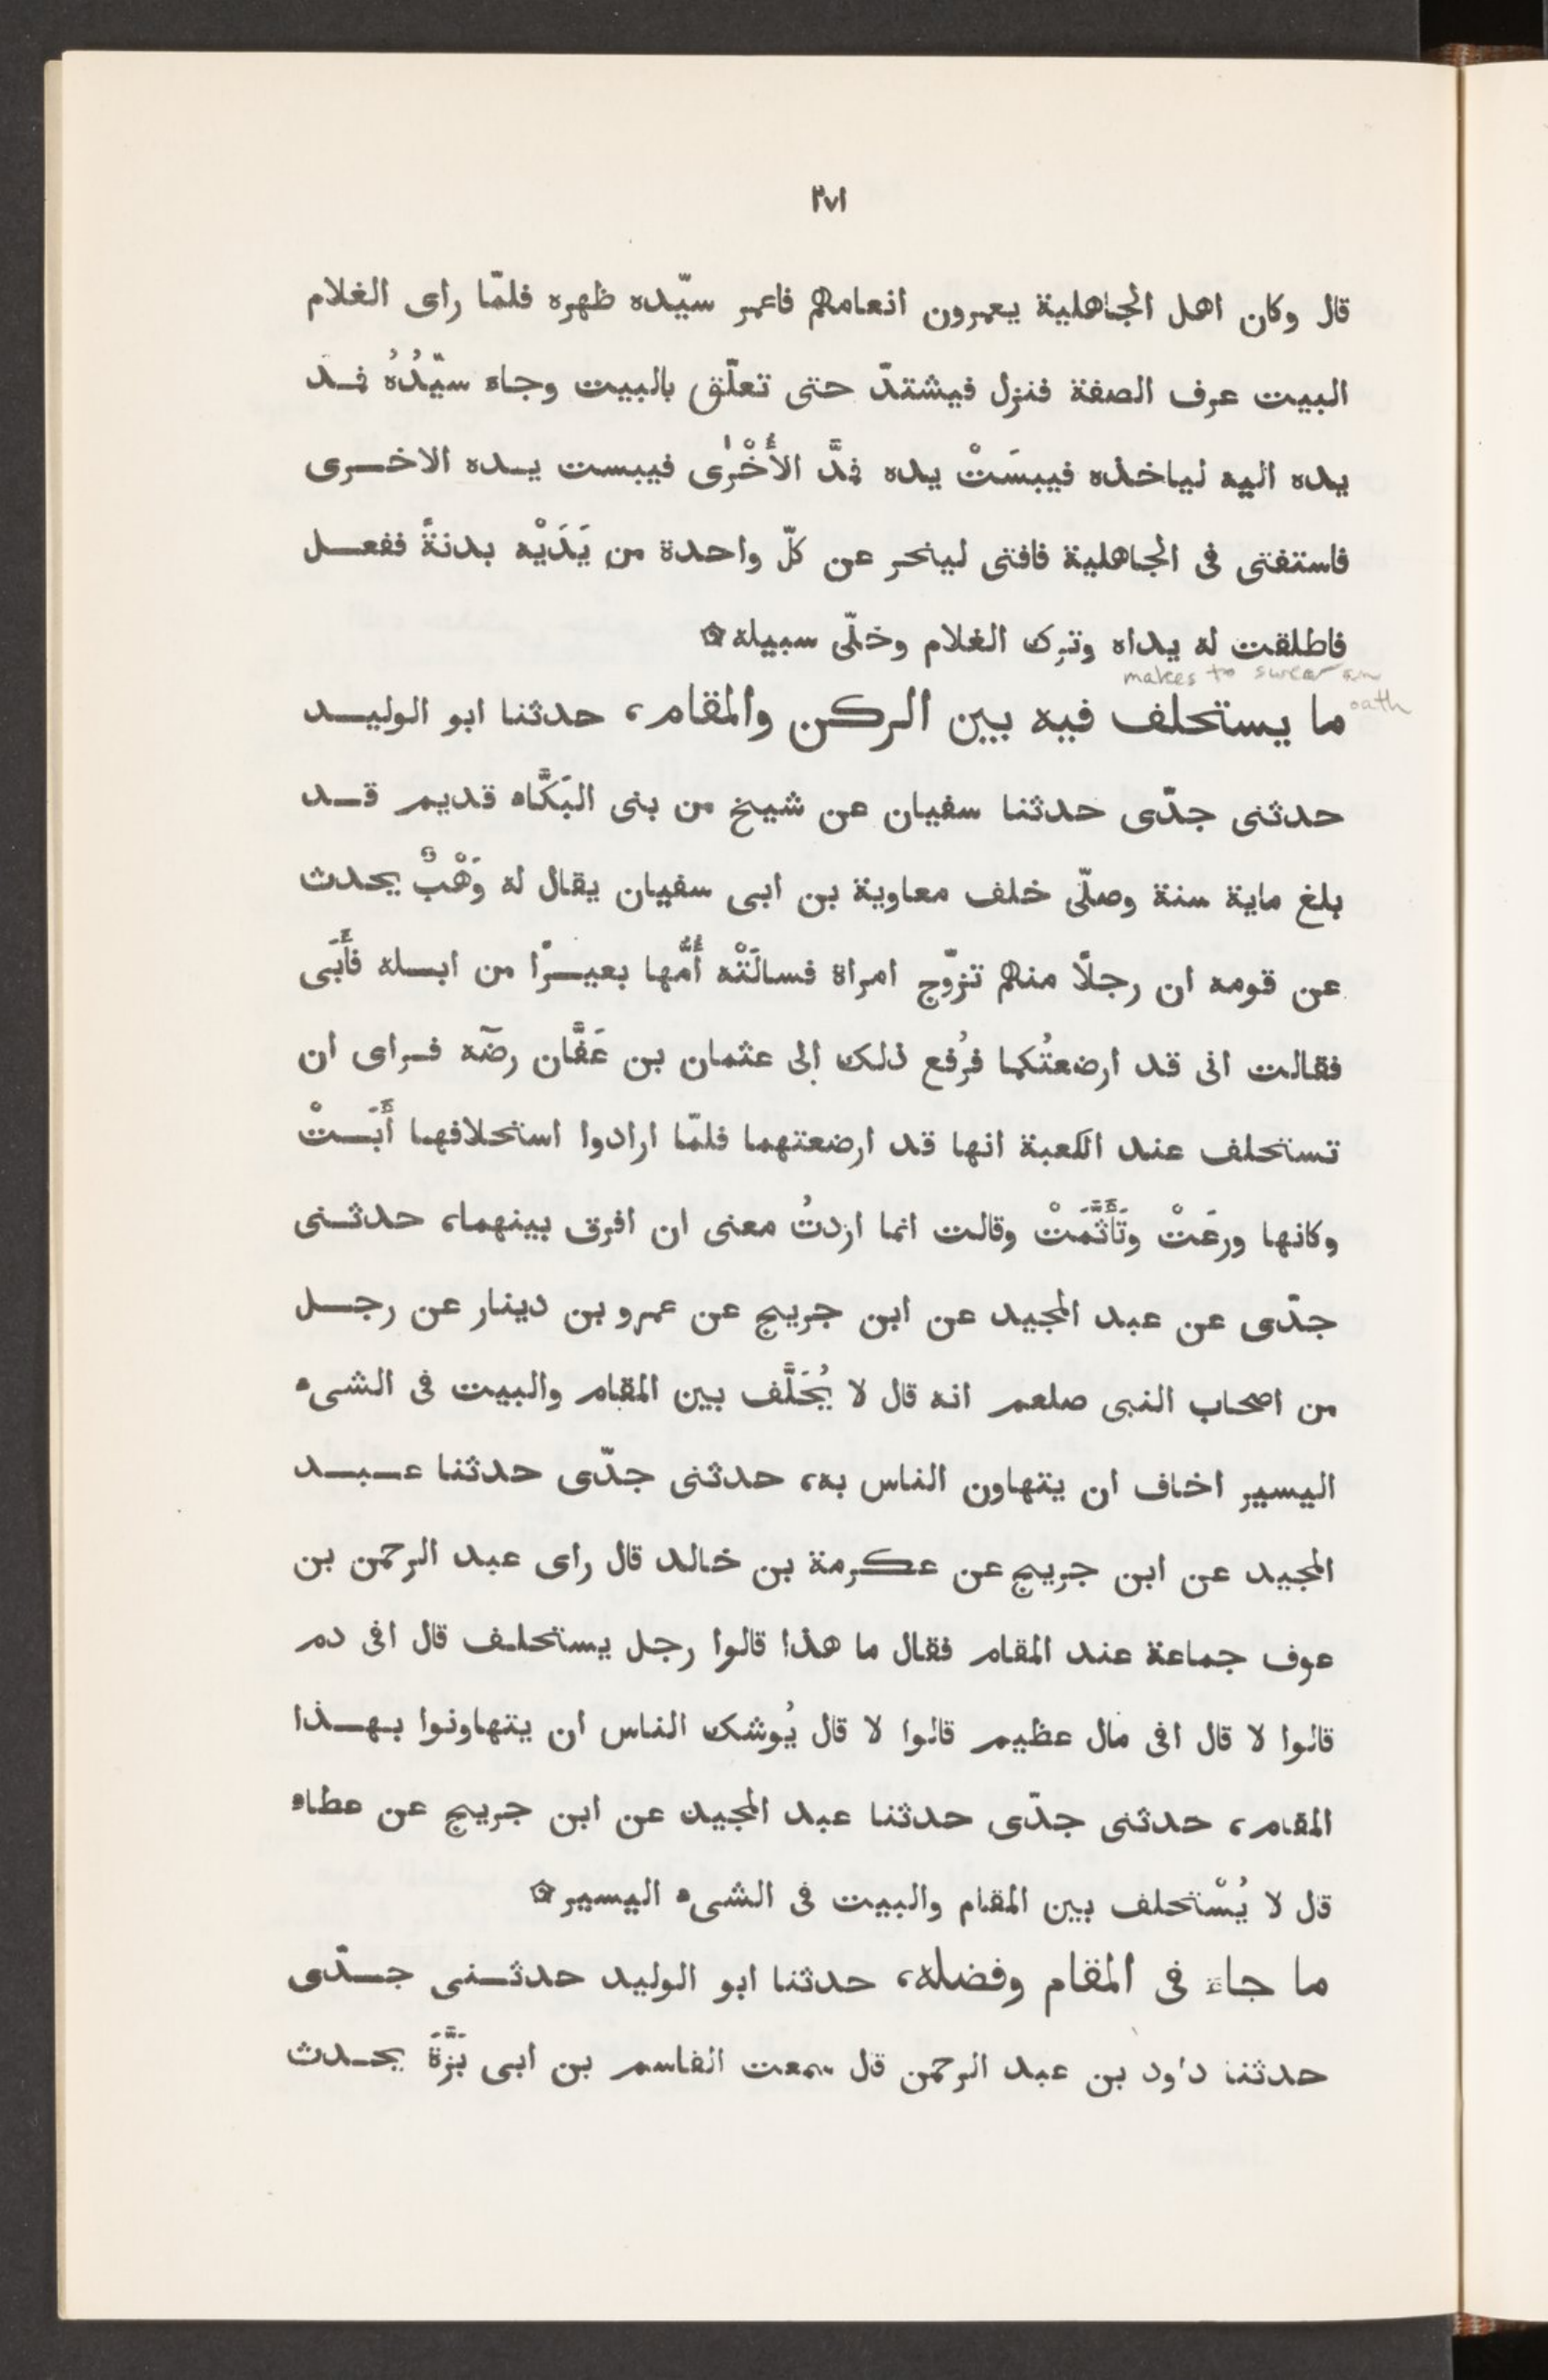 ٢٧١
قال وكان اهل الجاهلية يعمرون انعامهم فاعمر سيّده ظهره فلمّا راى الغلام
البيت عرف الصفة فنزل فيشتدّ حتى تعلّق بالبيت وجاء سيّدُهُ فمد
يده اليه لياخذه فيبسَتْ يده فمدَّ الأُخْرٰى فيبست يده الاخرى
فاستفتى فى الجاهلية فافتى لينحر عن كلّ واحدة من يَدَيْه بدنةً ففعل
فاطلقت له يداه وترك الغلام وخلّى سبيله ۞
makes to swear an
oath
ما يستحلف فيه بين الركن والمقام، حدثنا ابو الوليد
حدثنى جدّى حدثنا سفيان عن شيخ من بنى البَكَّاء قديم قد
بلغ ماية سنة وصلّى خلف معاوية بن ابى سفيان يقال له وَهْبٌ يحدث
عن قومه ان رجلًا منهم تزوّج امراة فسالَتْه أُمُّها بعيرًا من ابله فأَبَى
فقالت انى قد ارضعتُكما فرُفع ذلك إلى عثمان بن عَفَّان رضّه فراى ان
تستحلف عند الكعبة انها قد ارضعتهما فلمّا ارادوا استحلافها أَبَتْ
وكانها ورعَتْ وتَأَثَّمَتْ وقالت انما اردتُ معنى ان افرق بينهما، حدثنى
جدّى عن عبد المجيد عن ابن جريج عن عمرو بن دينار عن رجل
من اصحاب النبى صلعم انه قال لا يُحَلَّف بين المقام والبيت فى الشىء
اليسير اخاف ان يتهاون الناس به، حدثنى جدّى حدثنا عبد
المجيد عن ابن جريج عن عكرمة بن خالد قال راى عبد الرحمن بن
عوف جماعة عند المقام فقال ما هذا قالوا رجل يستحلف قال افى دم
قالوا لا قال افى مال عظيم قالوا لا قال يُوشك الناس ان يتهاونوا بهذا
المقام، حدثنى جدّى حدثنا عبد المجيد عن ابن جريج عن عطاء
قال لا يُسْتحلف بين المقام والبيت فى الشىء اليسير ۞
ما جاء فى المقام وفضله، حدثنا ابو الوليد حدثنى جدّى
حدثنا داود بن عبد الرحمن قال سمعت القاسم بن ابى بَزَّةَ يحدث